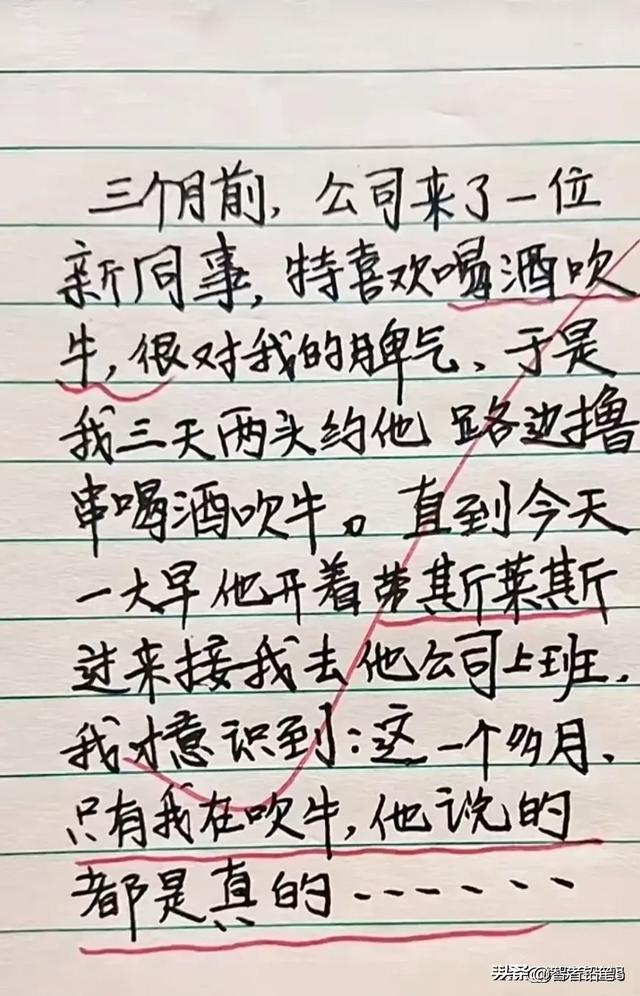 三个月前，公司来了一位
新同事，特喜欢喝酒吹
牛，很对我的脾气、于是
我三天两头约他路边撸
串喝酒吹牛。直到今天
一大早他开着劳斯莱斯
过来接我去他公司上班，
我才意识到：这一个多月、
只有我在吹牛，他说的
都是真的······
头条